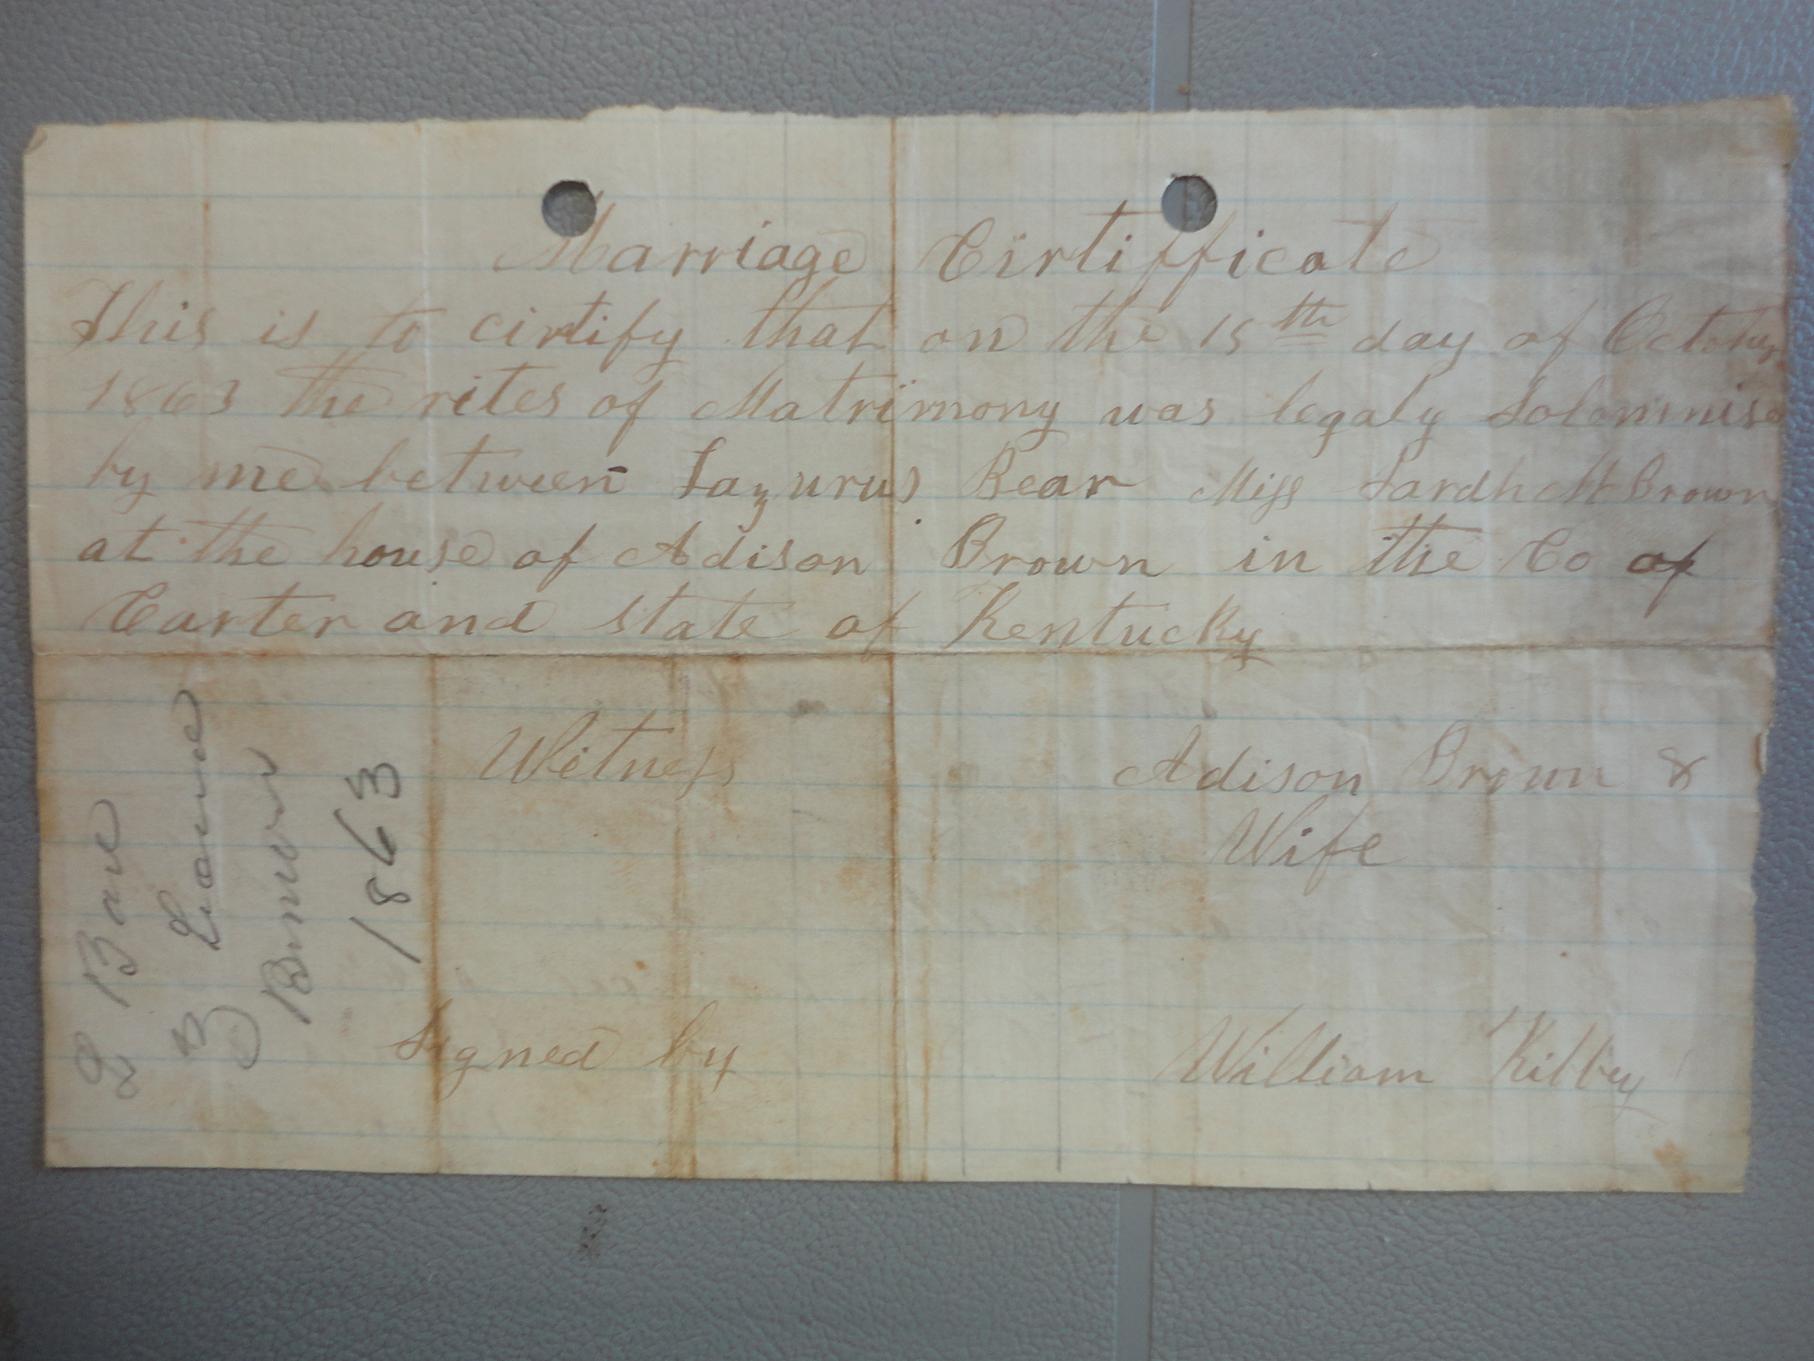 Marriage Cirtifficate
This is to cirtify that on the 15th day of October
1863 the rites of Matrimony was legaly Solemnise
by me between Lazurus Bear Miss Brown
at the house of Adison Brown in the Co of
Carter and state of Kentucky
Witness Adison Brown &
Wife
Signed by William Kilbey
L
1863